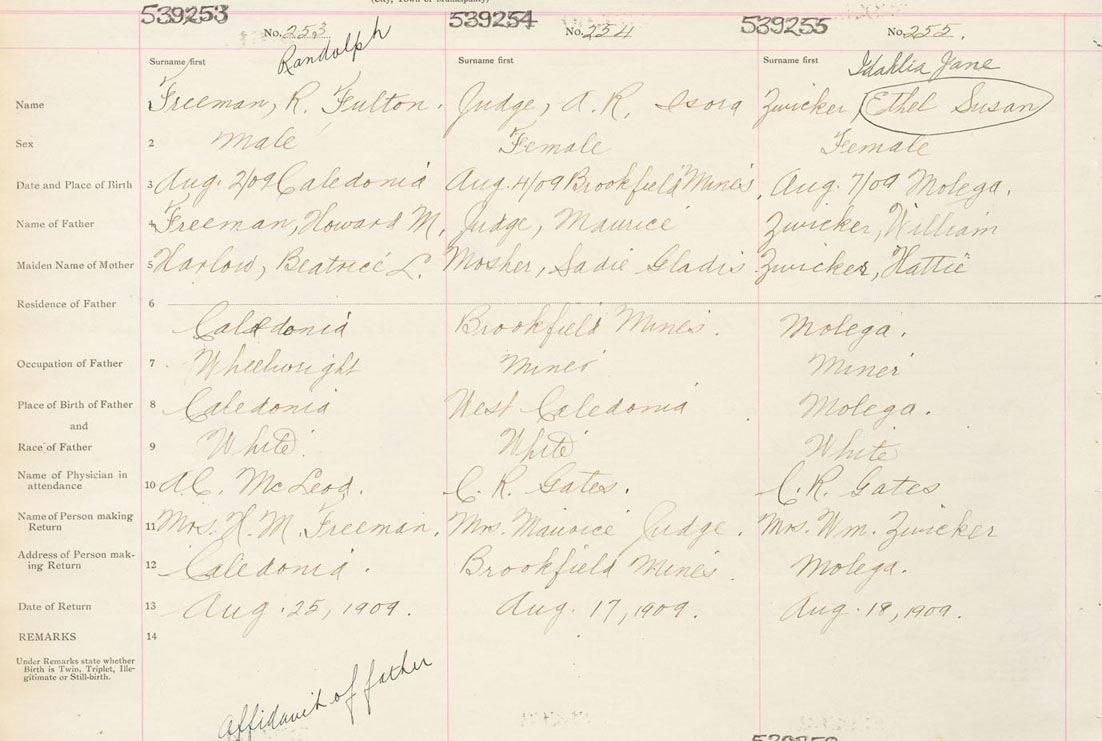 (City, Town or Municipality)
539253 539254 539255
No. 253 No. 254 No. 255.
Randolph
Surname first Surname first Surname first Idahlia Jane
Name Freeman, R. Fulton. Judge, A. R. Isora Zwicker, Ethel Susan
Sex 2 Male Female Female
Date and Place of Birth 3 Aug. 2/09 Caledonia Aug. 4/09 Brookfield Mines, Aug. 7/09 Molega.
Name of Father 4 Freeman, Howard M. Judge, Maurice Zwicker, William
Maiden Name of Mother 5 Harlow, Beatrice L. Mosher, Sadie Gladis Zwicker, Hattie
Residence of Father 6
Caledonia Brookfield Mines. Molega.
Occupation of Father 7 Wheelwright Miner Miner
Place of Birth of Father 8 Caledonia West Caledonia Molega.
and
Race of Father 9 White White White
Name of Physician in
attendance 10 A.C. McLeod. C. R. Gates. C. R. Gates
Name of Person making
Return 11 Mrs. H. M. Freeman. Mrs. Maurice Judge. Mrs. Wm. Zwicker
Address of Person mak-
ing Return 12 Caledonia. Brookfield Mines. Molega.
Date of Return 13 Aug. 25, 1909. Aug. 17, 1909. Aug. 18, 1909.
REMARKS 14
Under Remarks state whether
Birth is Twin, Triplet, Ille-
gitimate or Still-birth.
Affidavit of father